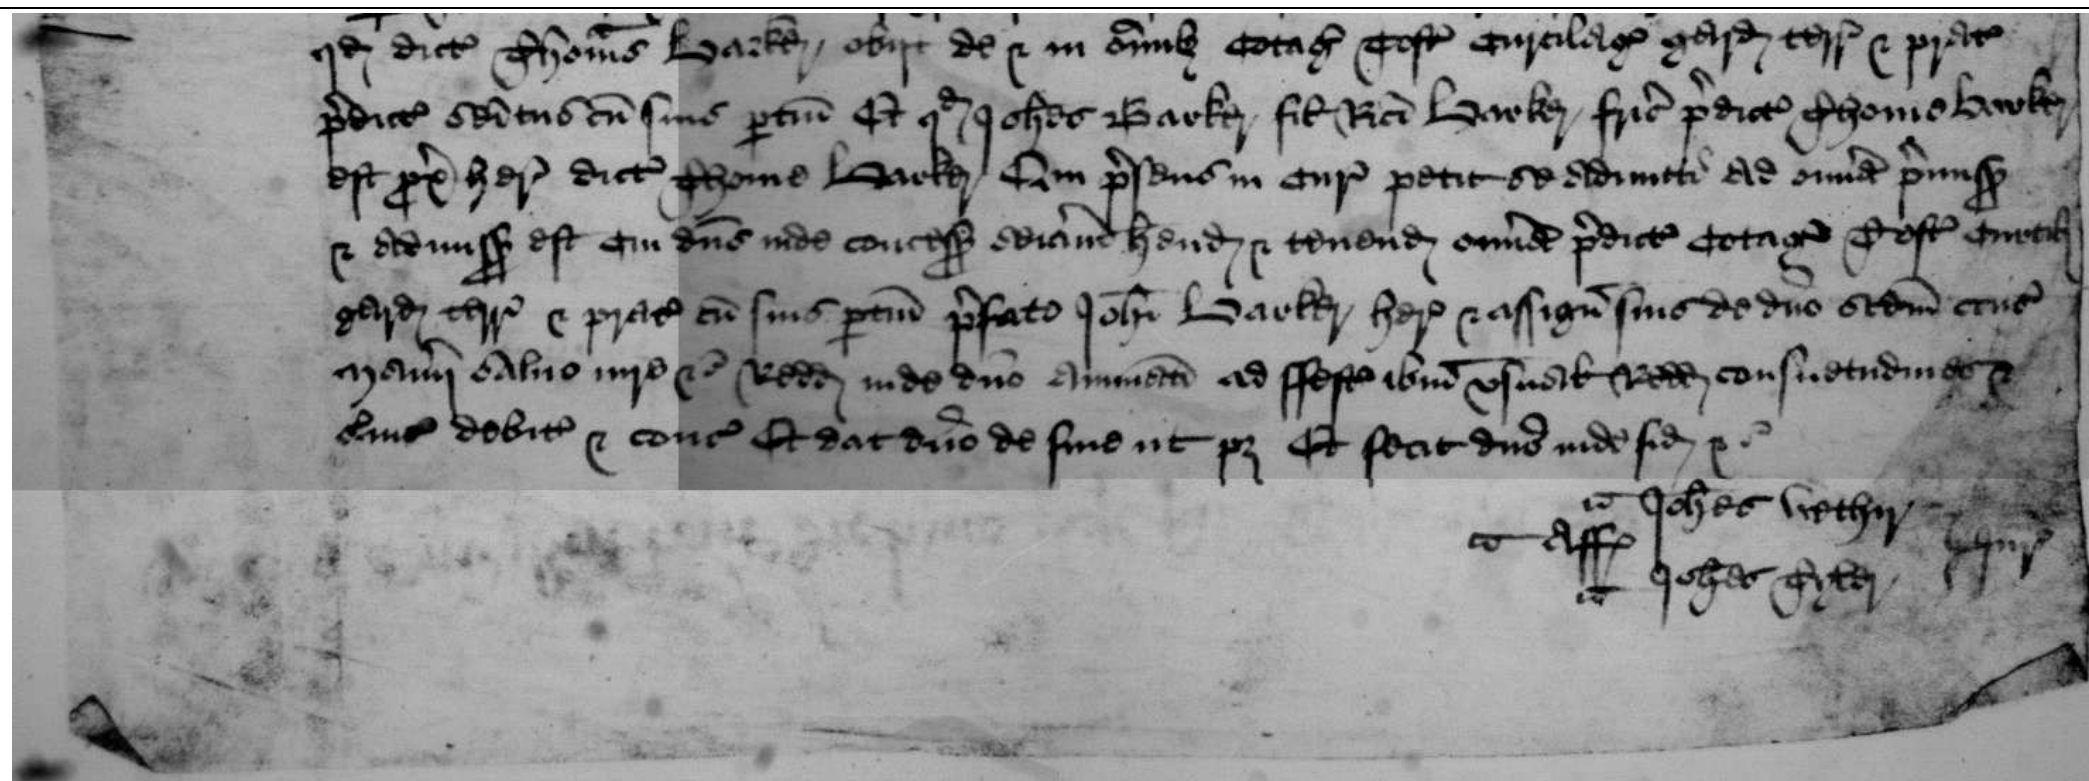 qd dict Thomas Barker obijt de & in omib Cotag Toft Curtilag gard terr & prat
pdict seitus cu suis ptin Et qd Johes Barker fil Rici Barker fris pdict Thome Barker
est px her dict Thome Barker Qui psens in Cur petit se admitti ad omia pmiss
& admiss est Cui dns inde concess seiam hend & tenend omia pdict Cotag Toft Curtil
gard terr & prat cu suis ptin pfato Johi Barker her & assign suis de dno scdm cons
Manij saluo iure &c Redd inde dno annuati ad ffest ibm usual Redd consuetudines &
suic debit & cons Et dat dno de fine ut pz Et fecit dno inde fid &c
Johes
Aff Jur
Johes